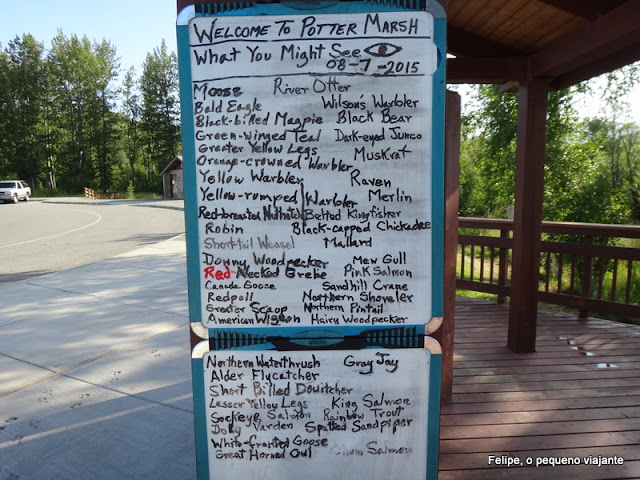 Welcome To Potter Marsh
What You Might See
08-7-2015
Moose River Otter
Bald Eagle Wilson's Warbler
Black-billed Magpie Black Bear
Green-winged Teal Dark-eyed Junco
Greater Yellow Legs Muskrat
Orange-crowned Warbler
Yellow Warbler Raven
Yellow-rumped Warbler Merlin
Red-breasted Nuthatch Belted Kingfisher
Robin Black-capped Chickadee
Short-tail Weasel Mallard
Downy Woodpecker Mew Gull
Red-Necked Grebe Pink Salmon
Canada Goose Sandhill Crane
Redpoll Northern Shoveler
Greater Scaup Northern Pintail
American Wigeon Hairy Woodpecker
Northern Waterthrush Gray Jay
Alder Flycatcher
Short Billed Dowitcher
Lesser Yellow Legs King Salmon
Sockeye Salmon Rainbow Trout
Dolly Varden Spotted Sandpiper
White-fronted Goose
Great Horned Owl Salmon
Felipe, o pequeno viajante